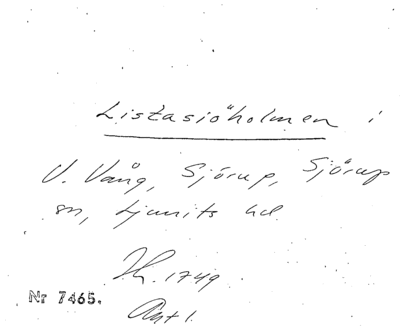 Listasjöholmen i
V. Vång, Sjörup, Sjörup
sn, Ljunits hd
Th. 1749
Nr 7465.
Akt 1.